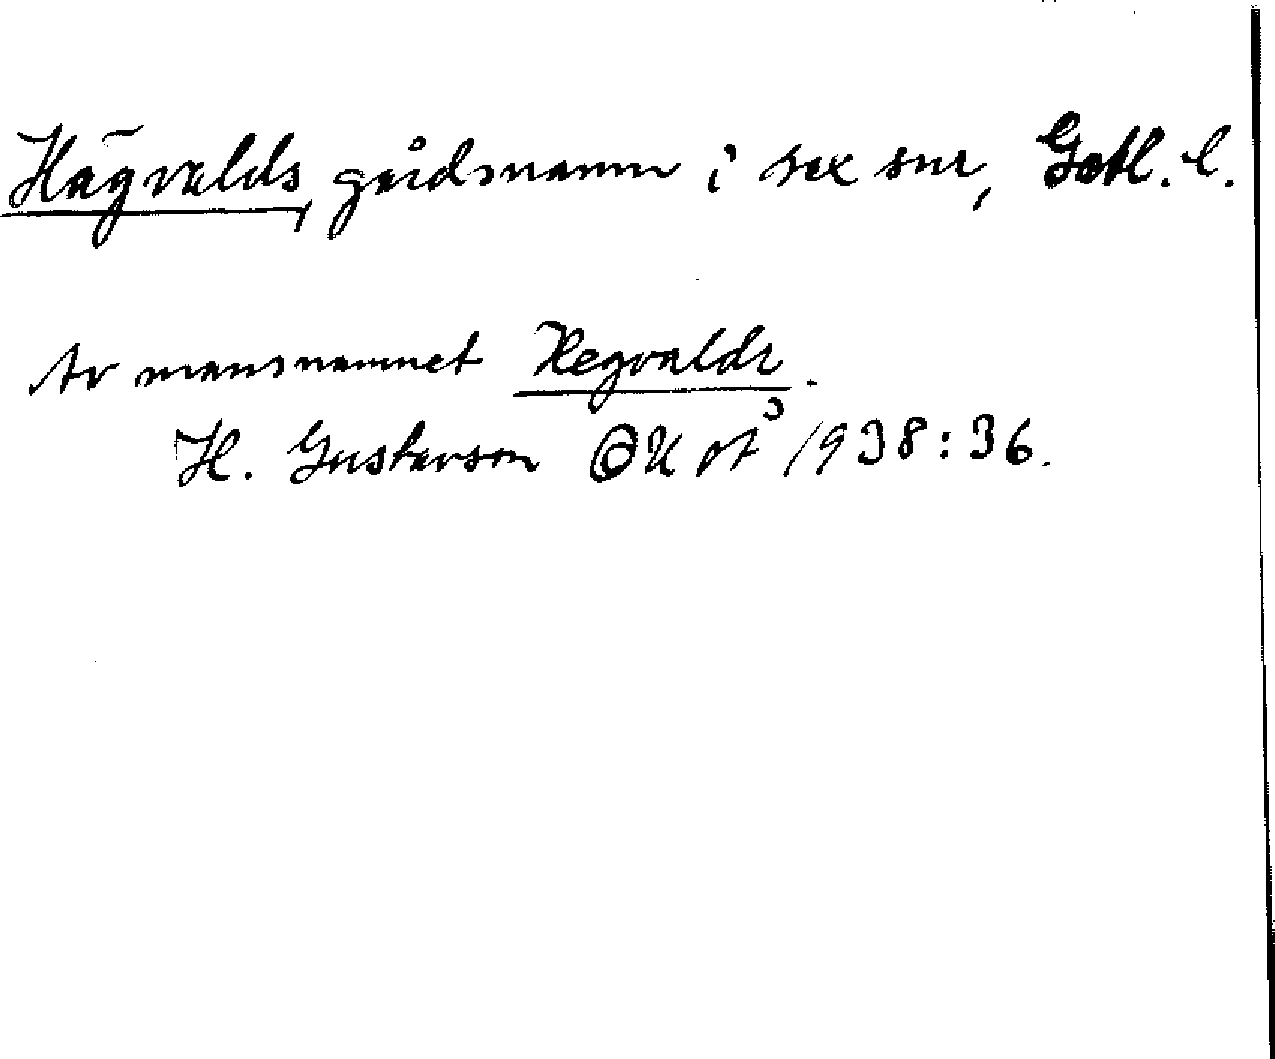 Hägvalds, gårdsnamn i sex snr, Gotl. l.
Av mansnamnet Hegvaldr.
H. Gustavson OUÅ 1938:36.